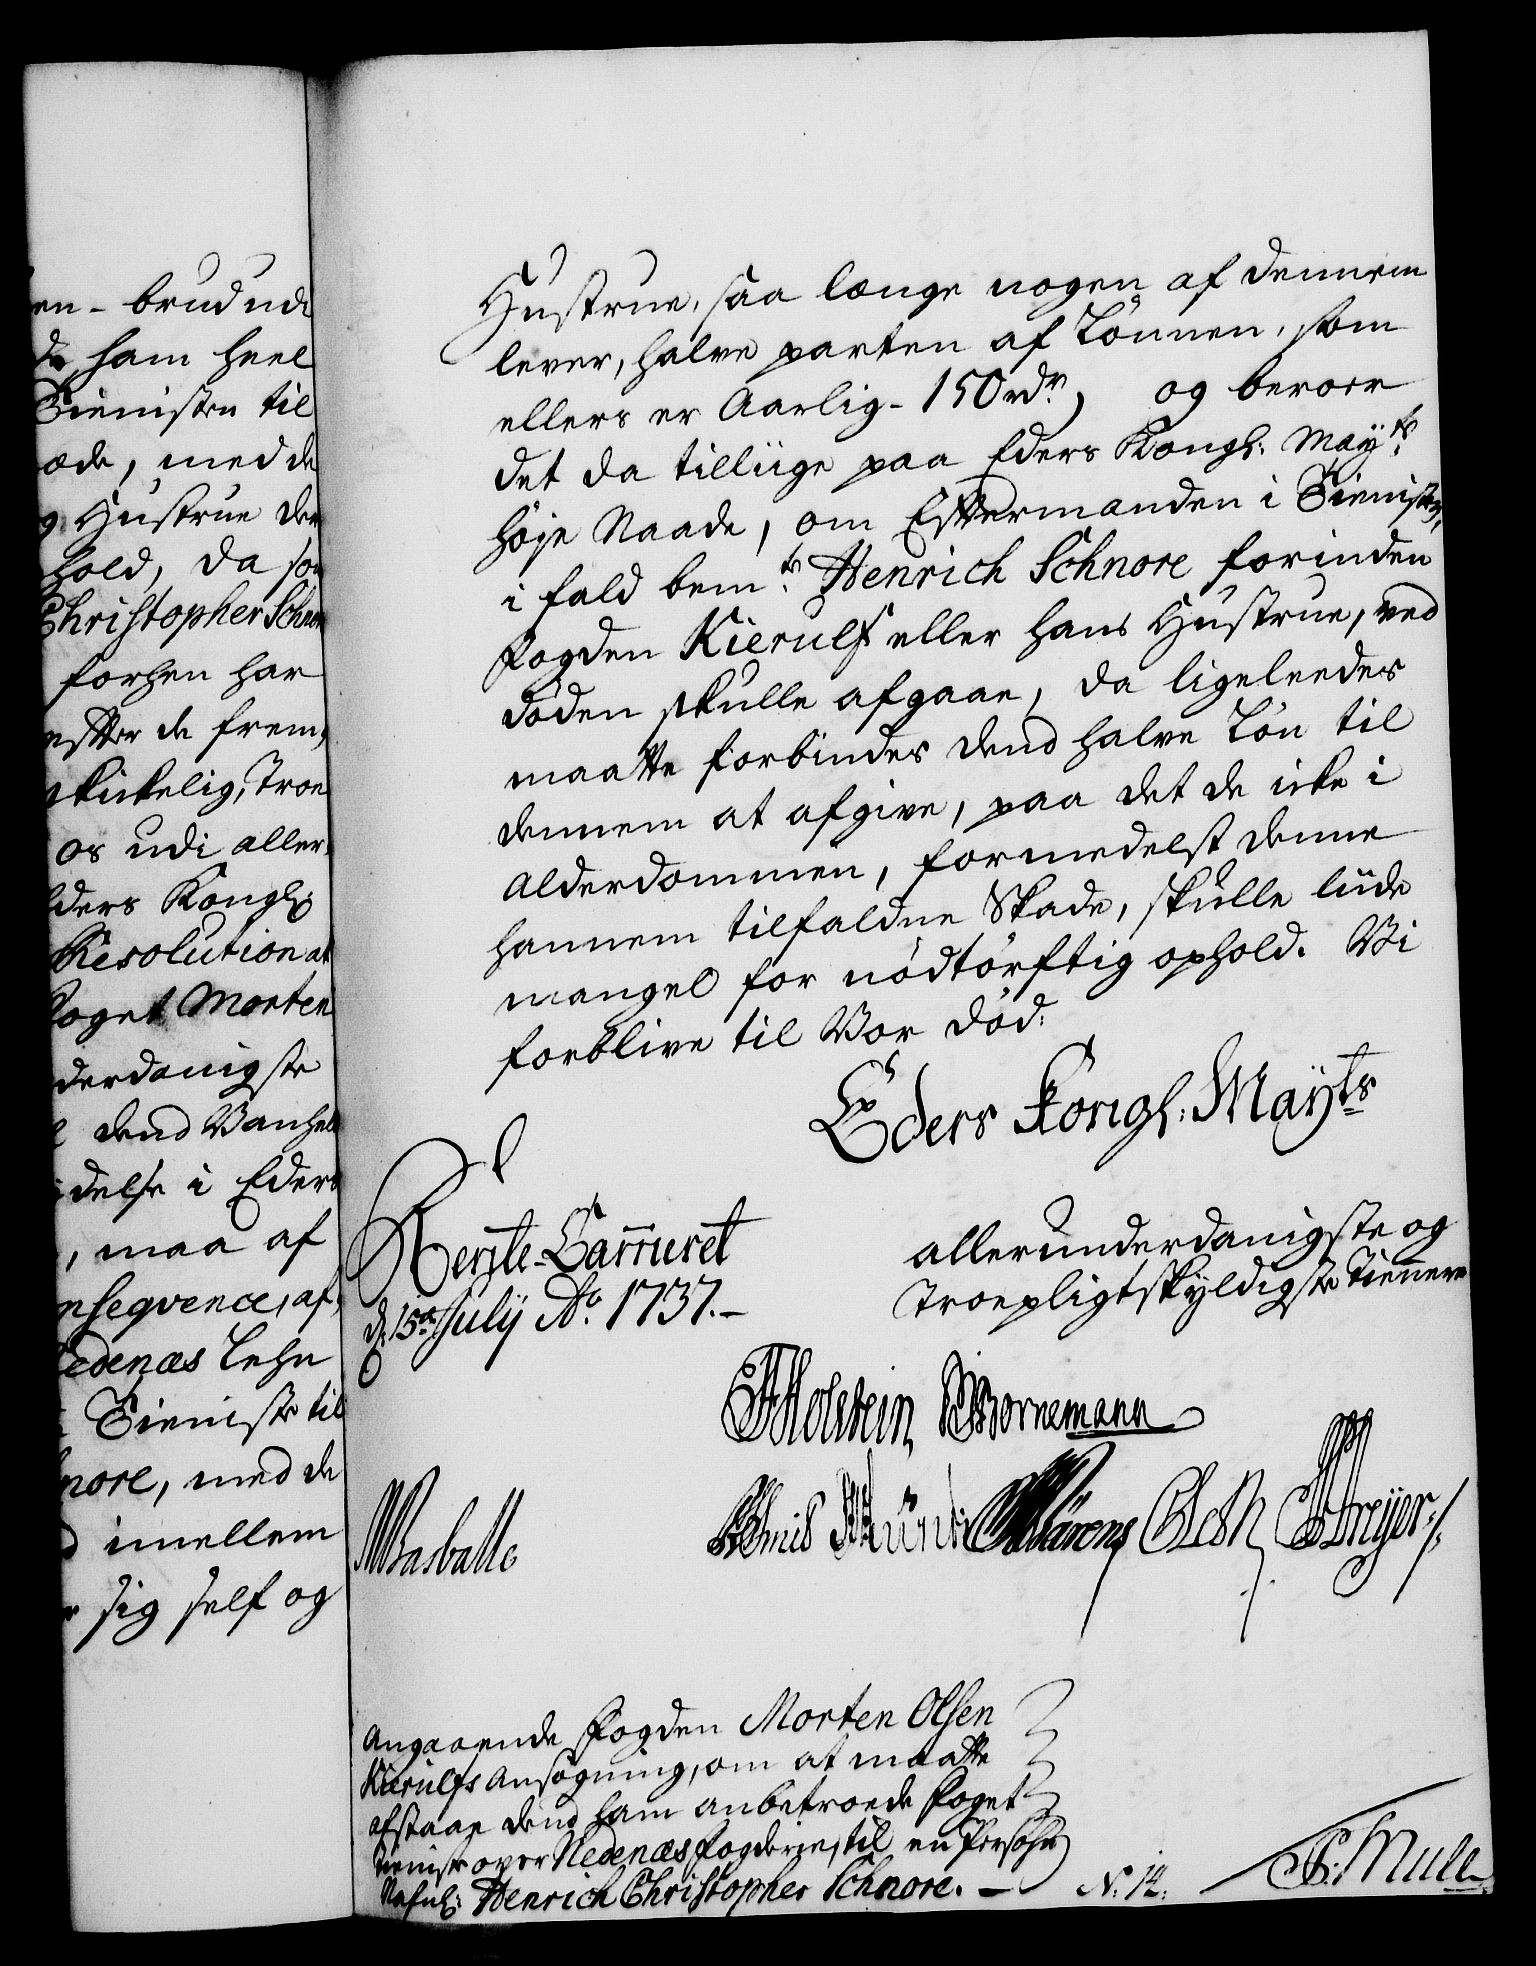 en - brud udi
ham heel
Tienisten til
æde, med de
Hustrue der
hold, da som
Christopher Schnore
forhen har
efter de frem,
skikkelig, Troe
os udi aller,
Eders Kongl:
Resolution at
Foget Morten
derdanigste
dend Vanhel
delse i Eders
, maa af
nseqvence, af,
Nedenæs Lehn
Tieniste til
nore, med de
imellem
sig self og
Hustrue, saa længe nogen af dennem
lever, halve parten af Lönnen, som
ellers er Aarlig - 150 rdr, og beroer
det da tilliige paa Eders Kongl: Mayts:
höje Naade, om Effermanden i Tienisten,
i fald bemte: Henrich Schnore forinden
Fogden Kierulf eller hans Hustrue, ved
döden skulle afgaae, da ligeleedes
maatte forbindes dend halve Lön til
dennem at afgive, paa det de icke i
Alderdommen, formedelst denne
hannem tilfaldne Skade, skulle liide
mangel for nödtörftig ophold. Vi
forblive til Vor död:
Eders Kongl: Mayts
Rente-Cammeret
d: 15de July Ao. 1737.-
allerunderdanigste og
Troepligtskyldigste Tienere
Holstein, Bornemann
Basballe
Dreyer
Angaaende Fogden Morten Olsen
Kierulfs Ansögning, om at maatte
afstaae dend ham anbetroede Foget
tieniste over Nedenæs Fogderie, til en Persohn
Nafnl: Henrich Christopher Schnore. -
N: 14.
Mull